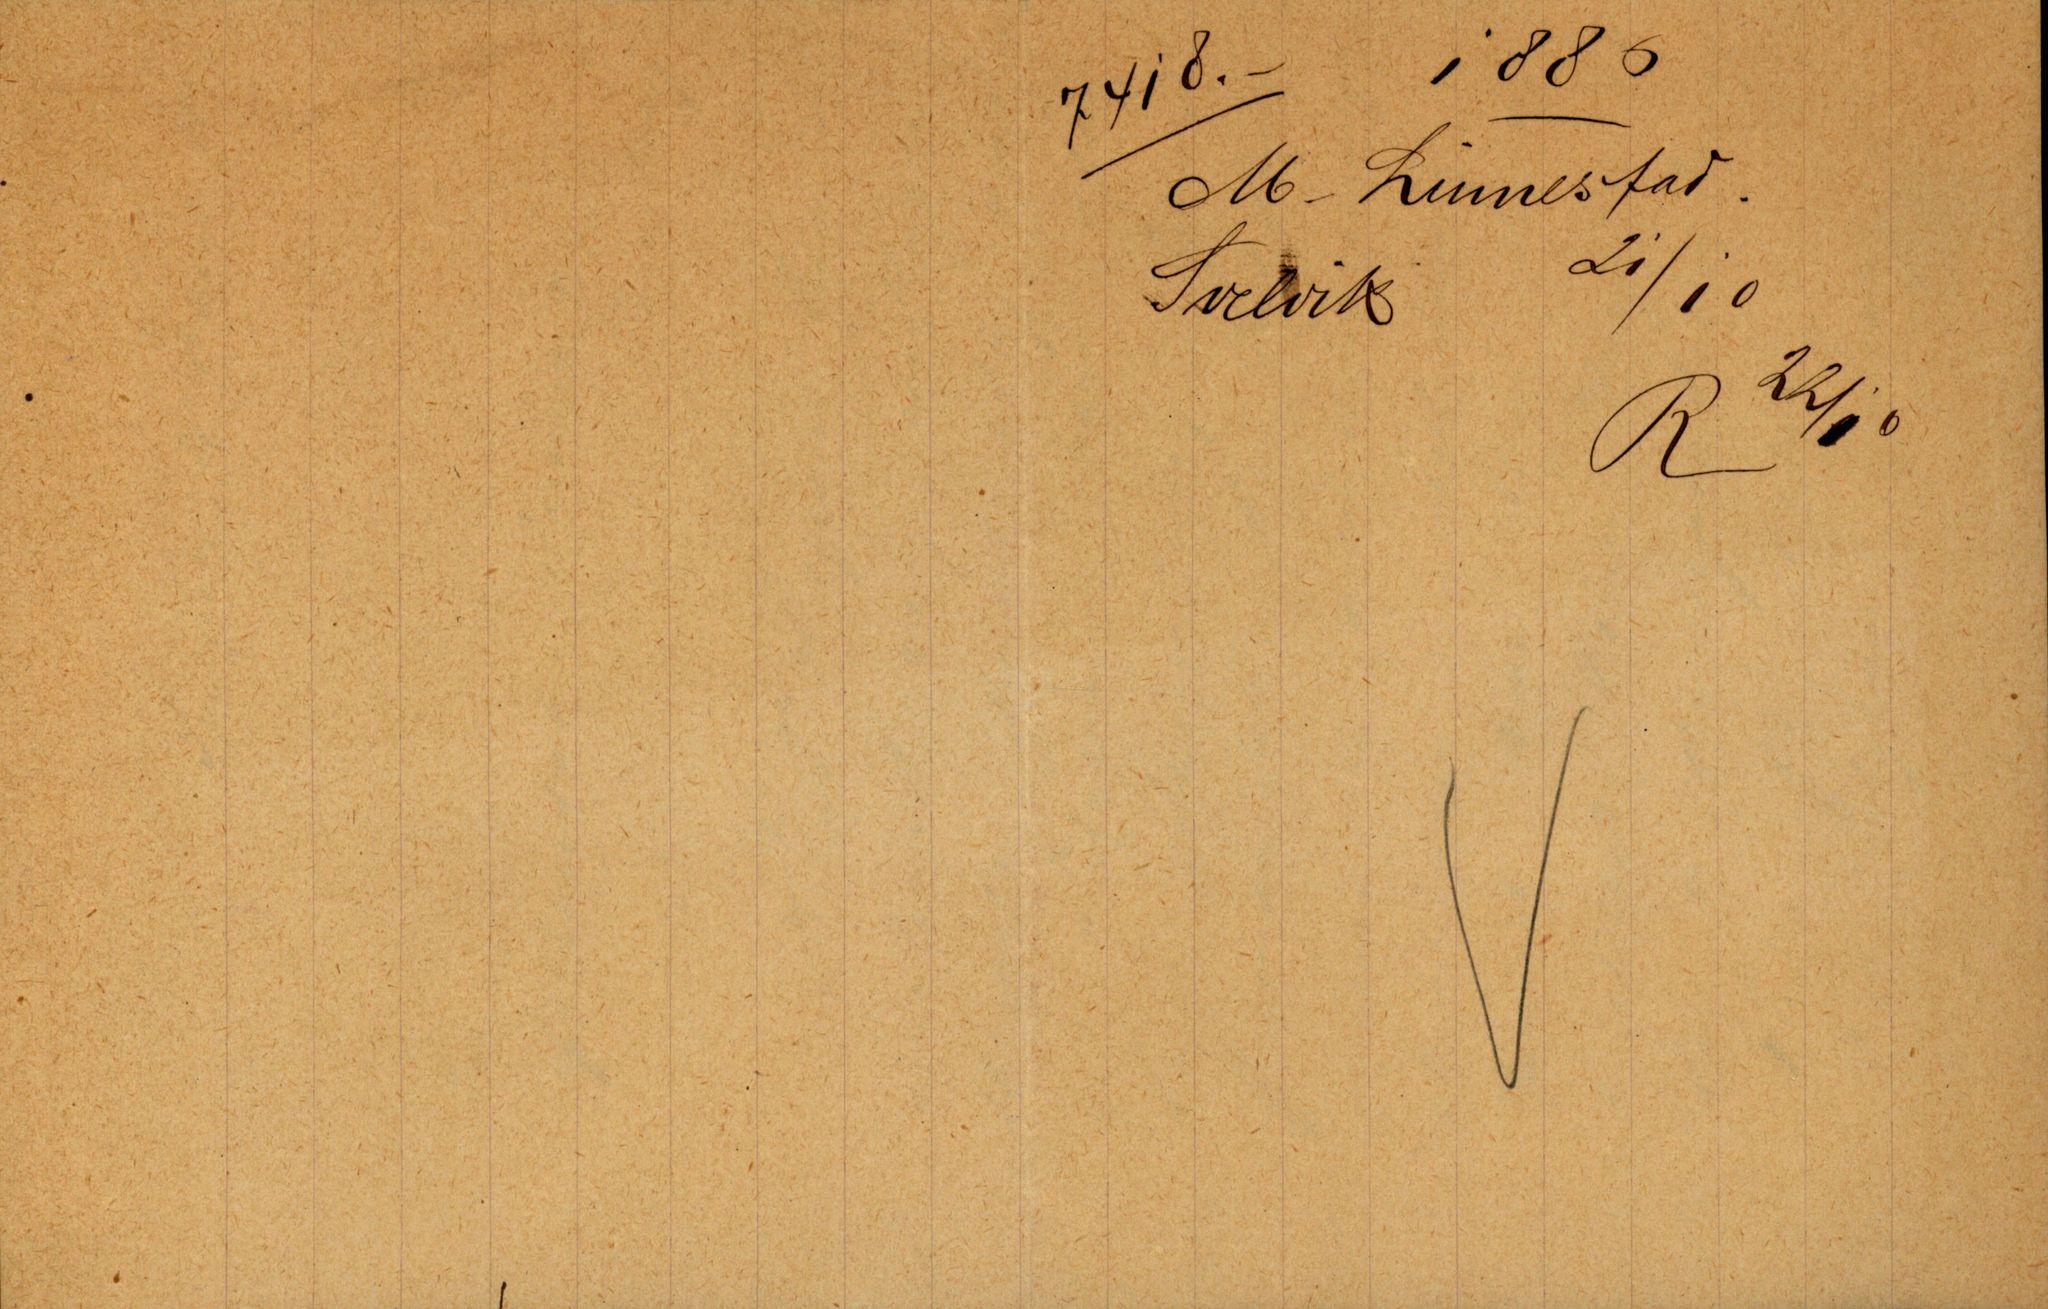 7418.- 1886
M. Linnestad.
Svelvik 21/10
R 22/10